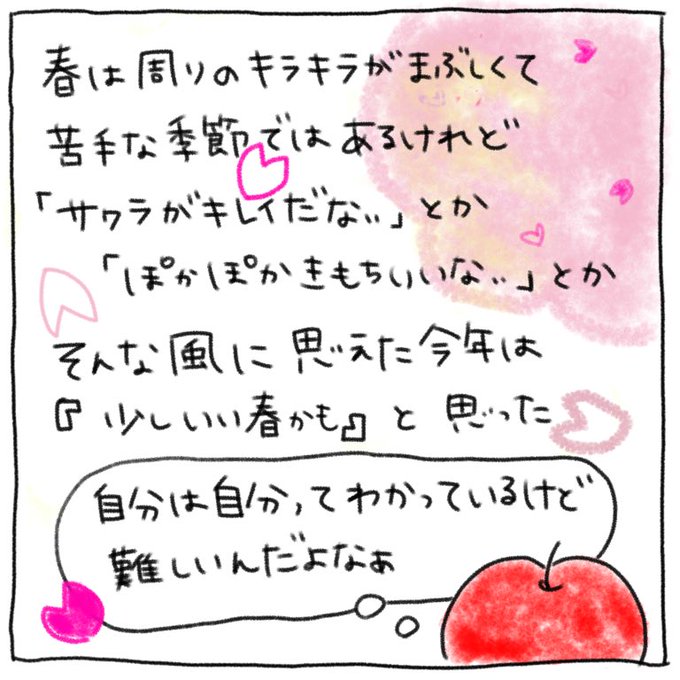 春は周りのキラキラがまぶしくて
苦手な季節ではあるけれど
「サクラがキレイだな‥」とか
「ぽかぽかきもちいいな‥」とか
そんな風に思えた今年は
『少しいい春かも』と思った
自分は自分ってわかっているけど
難しいんだよなぁ